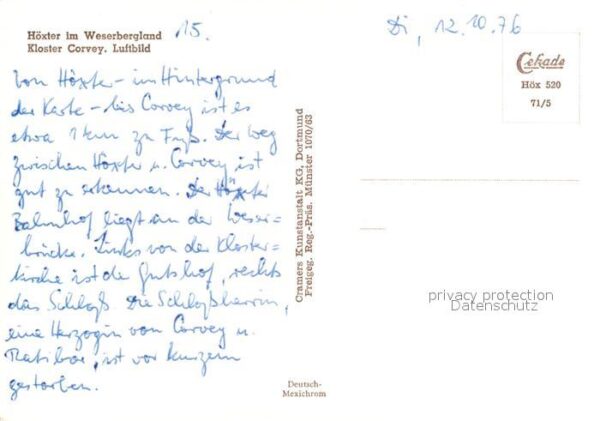 Höxter im Weserbergland
Kloster Corvey. Luftbild
15.
Di, 12.10.76
Cekade
Höx 520
71/5
Von Höxter – im Hintergrund
der Karte – bis Corvey ist es
etwa 1 km zu Fuß. Der Weg
zwischen Höxter u. Corvey ist
gut zu erkennen. Der Höxter
Bahnhof liegt an der Weser-
brücke. Links von der Kloster-
kirche ist der Gutshof, rechts
das Schloß. Die Schloßherrin,
eine Herzogin von Corvey u.
Ratibor, ist vor kurzem
gestorben.
Cramers Kunstanstalt KG, Dortmund
Freigeg. Reg.-Präs. Münster 1070/63
privacy protection
Datenschutz
Deutsch-
Mexichrom